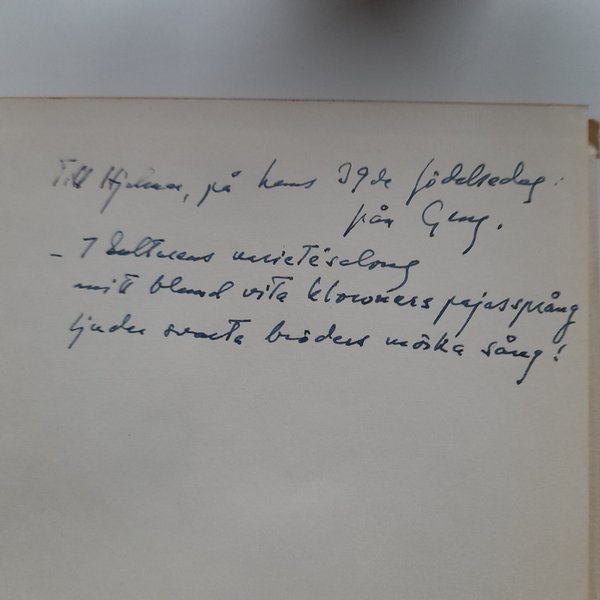 Till Hjalmar, på hans 39de födelsedag:
från Gug.
– I Kulturens varietésalong
mitt bland vita clowners pajassprång
ljuder svarta bröders mörka sång!